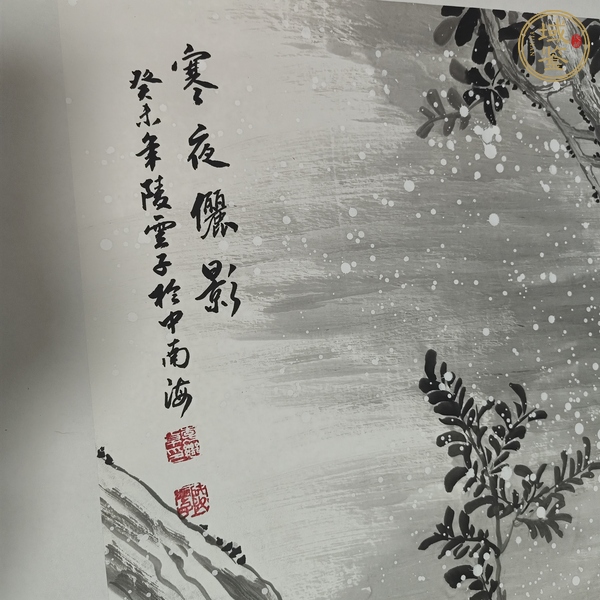 寒夜儷影
癸未年陵雲子於中南海